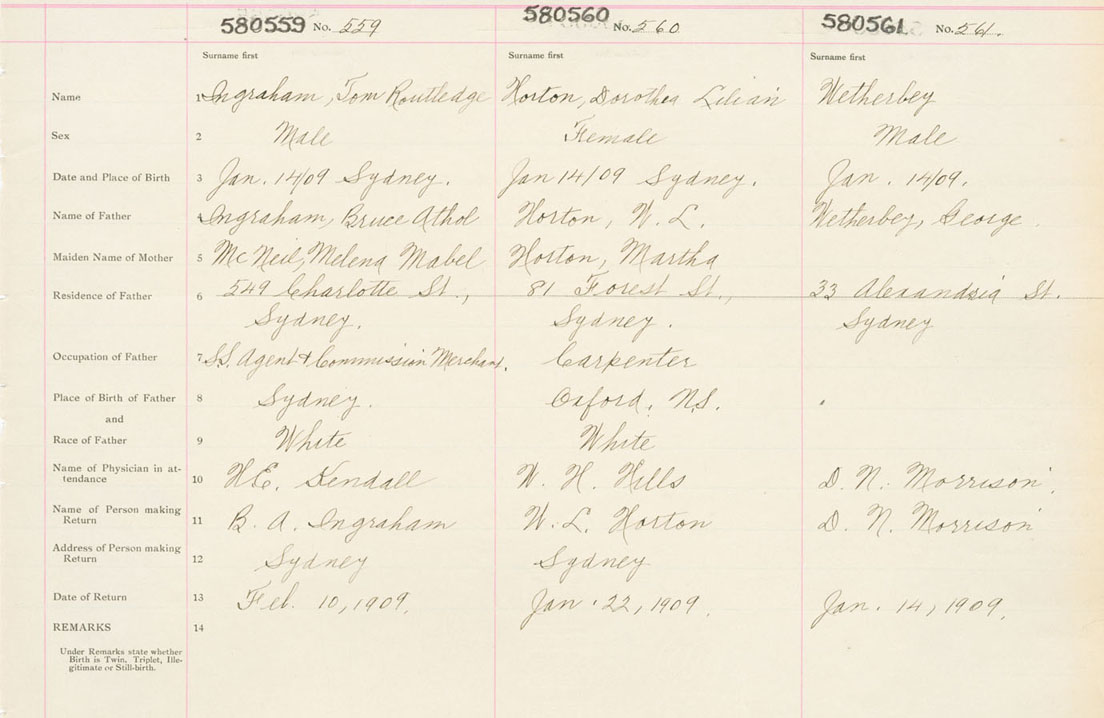 580559 No. 559 580560 No. 560 580561 No. 561.
Surname first Surname first
Name 1 Ingraham, Tom Routledge Horton, Dorothea Lilian Wetherbey
Sex 2 Male Female Male
Date and Place of Birth 3 Jan. 14/09 Sydney. Jan 14/09 Sydney. Jan. 14/09.
Name of Father 4 Ingraham, Bruce Athol Horton, W. L. Wetherbey, George
Maiden Name of Mother 5 McNeil, Melena Mabel Horton, Martha
Residence of Father 6 549 Charlotte St., 81 Forest St., 33 Alexandria St.
Sydney. Sydney. Sydney
Occupation of Father 7 S.S. Agent & Commission Merchant. Carpenter
Place of Birth of Father 8 Sydney. Oxford, N.S.
and
Race of Father 9 White White
Name of Physician in at-
tendance 10 H.E. Kendall W. H. Hills D. N. Morrison
Name of Person making
Return 11 B. A. Ingraham W. L. Horton D. N. Morrison
Address of Person making
Return 12 Sydney Sydney
Date of Return 13 Feb. 10, 1909. Jan. 22, 1909. Jan. 14, 1909.
REMARKS 14
Under Remarks state whether
Birth is Twin, Triplet, Ille-
gitimate or Still-birth.